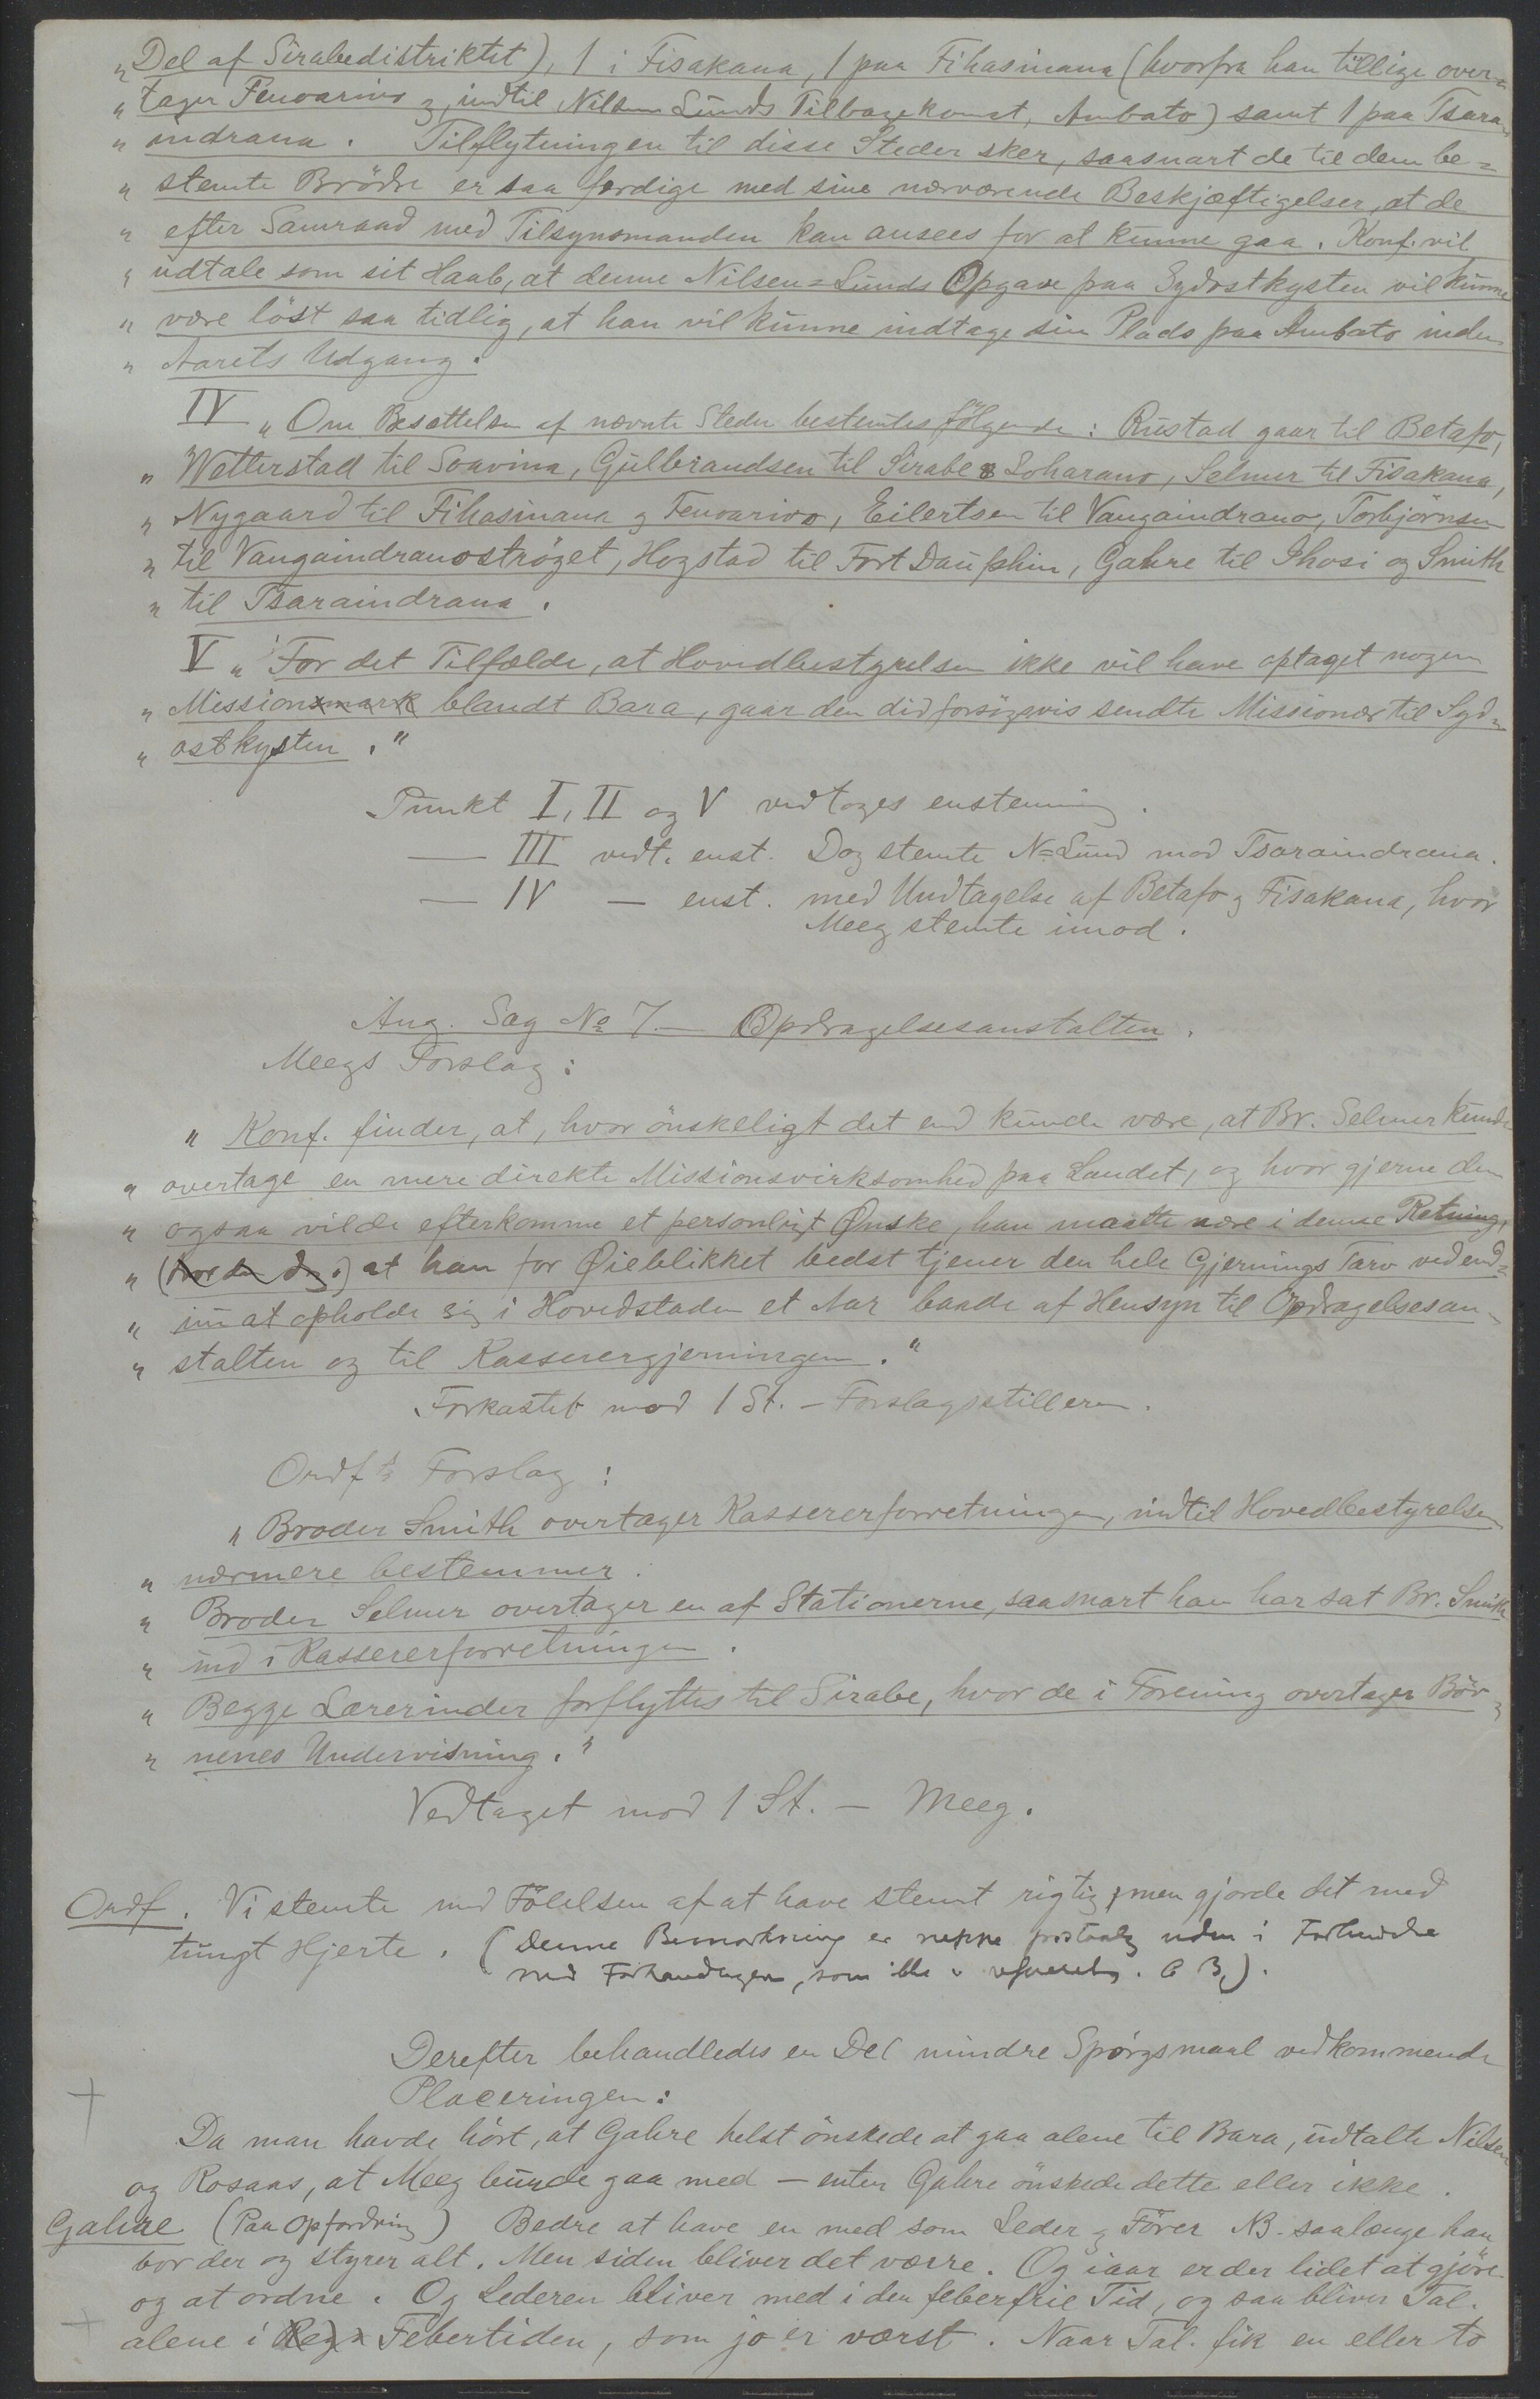 „Del af Sirabedistriktet), 1 i Fisakana, 1 paa Fihasinana (hvorfra han tillige over=
„ tager Fenoarivo og, indtil Nilsen Lunds Tilbagekomst, Ambato) samt 1 paa Tsara=
„ indrana. Tilflytningen til disse Steder sker, saasnart de til dem be=
„ stemte Brödre er saa færdige med sine nærværende Beskjæftigelser, at de
„ efter Samraad med Tilsynsmanden kan ansees for at kunne gaa. Konf. vil
„ udtale som sit Haab, at denne Nilsen=Lunds Opgave paa Sydostkysten vil kunne
„ være löst saa tidlig, at han vil kunne indtage sin Plads paa Ambato inden
„ Aarets Udgang.
IV „Om Besættelsen af nævnte Steder bestemtes fölgende: Rustad gaar til Betafo,
„ Wetterstad til Soavina, Gulbrandsen til Sirabe & Loharano, Selmer til Fisakana,
„ Nygaard til Fihasinana og Fenoarivo, Eilertsen til Vangaindrano, Torbjörnsen
„ til Vangaindranoströget, Hogstad til Fort Dauphin, Gahre til Ihosi og Smith
„ til Tsaraindrana.
V „For det Tilfælde, at Hovedbestyrelsen ikke vil have optaget nogen
„ Missionsmark blandt Bara, gaar den did forsögsvis sendte Missionær til Syd=
„ ostkysten."
Punkt I, II og V vedtoges enstemmig.
— III vedt. enst. Dog stemte N=Lund mod Tsaraindrana.
— IV — enst. med Undtagelse af Betafo og Fisakana, hvor
Meeg stemte imod.
Ang. Sag No 7. — Opdragelsesanstalten.
Meegs Forslag:
„ Konf. finder, at, hvor önskeligt det end kunde være, at Br. Selmer kunde
„ overtage en mere direkte Missionsvirksomhed paa Landet, og hvor gjerne den
„ ogsaa vilde efterkomme et personligt Ønske, han maatte nære i denne Retning,
„ at han for Øieblikket bedst tjener den hele Gjernings Tarv ved end=
„ nu at opholde sig i Hovedstaden et Aar baade af Hensyn til Opdragelsesan=
„ stalten og til Kasserergjerningen."
Forkastet mod 1 St. — Forslagsstilleren.
Ordf's Forslag:
„ Broder Smith overtager Kassererforretningen, indtil Hovedbestyrelsen
„ nærmere bestemmer.
„ Broder Selmer overtager en af Stationerne, saasnart han har sat Br. Smith
„ ind i Kassererforretningen.
„ Begge Lærerinder forflyttes til Sirabe, hvor de i Forening overtager Bör=
„ nenes Undervisning."
Vedtaget mod 1 St. — Meeg.
Ordf. Vi stemte med Fölelsen af at have stemt rigtig, men gjorde det med
tungt Hjerte. (Denne Bemærkning er neppe forstaalig uden i Forbindelse
med Forhandlingen, som ikke er refereret. C B.).
Derefter behandledes en Del mindre Spörgsmaal vedkommende
Placeringen:
Da man havde hört, at Gahre helst önskede at gaa alene til Bara, udtalte Nilsen
og Rosaas, at Meeg burde gaa med — enten Gahre önskede dette eller ikke.
Gahre (Paa Opfordring) Bedre at have en med som Leder og Förer NB. saalænge han
bor der og styrer alt. Men siden bliver det værre. Og iaar er der lidet at gjöre
og at ordne. Og Lederen bliver med i den feberfrie Tid, og saa bliver Tal.
alene i Febertiden, som jo er værst. Naar Tal. fik en eller to